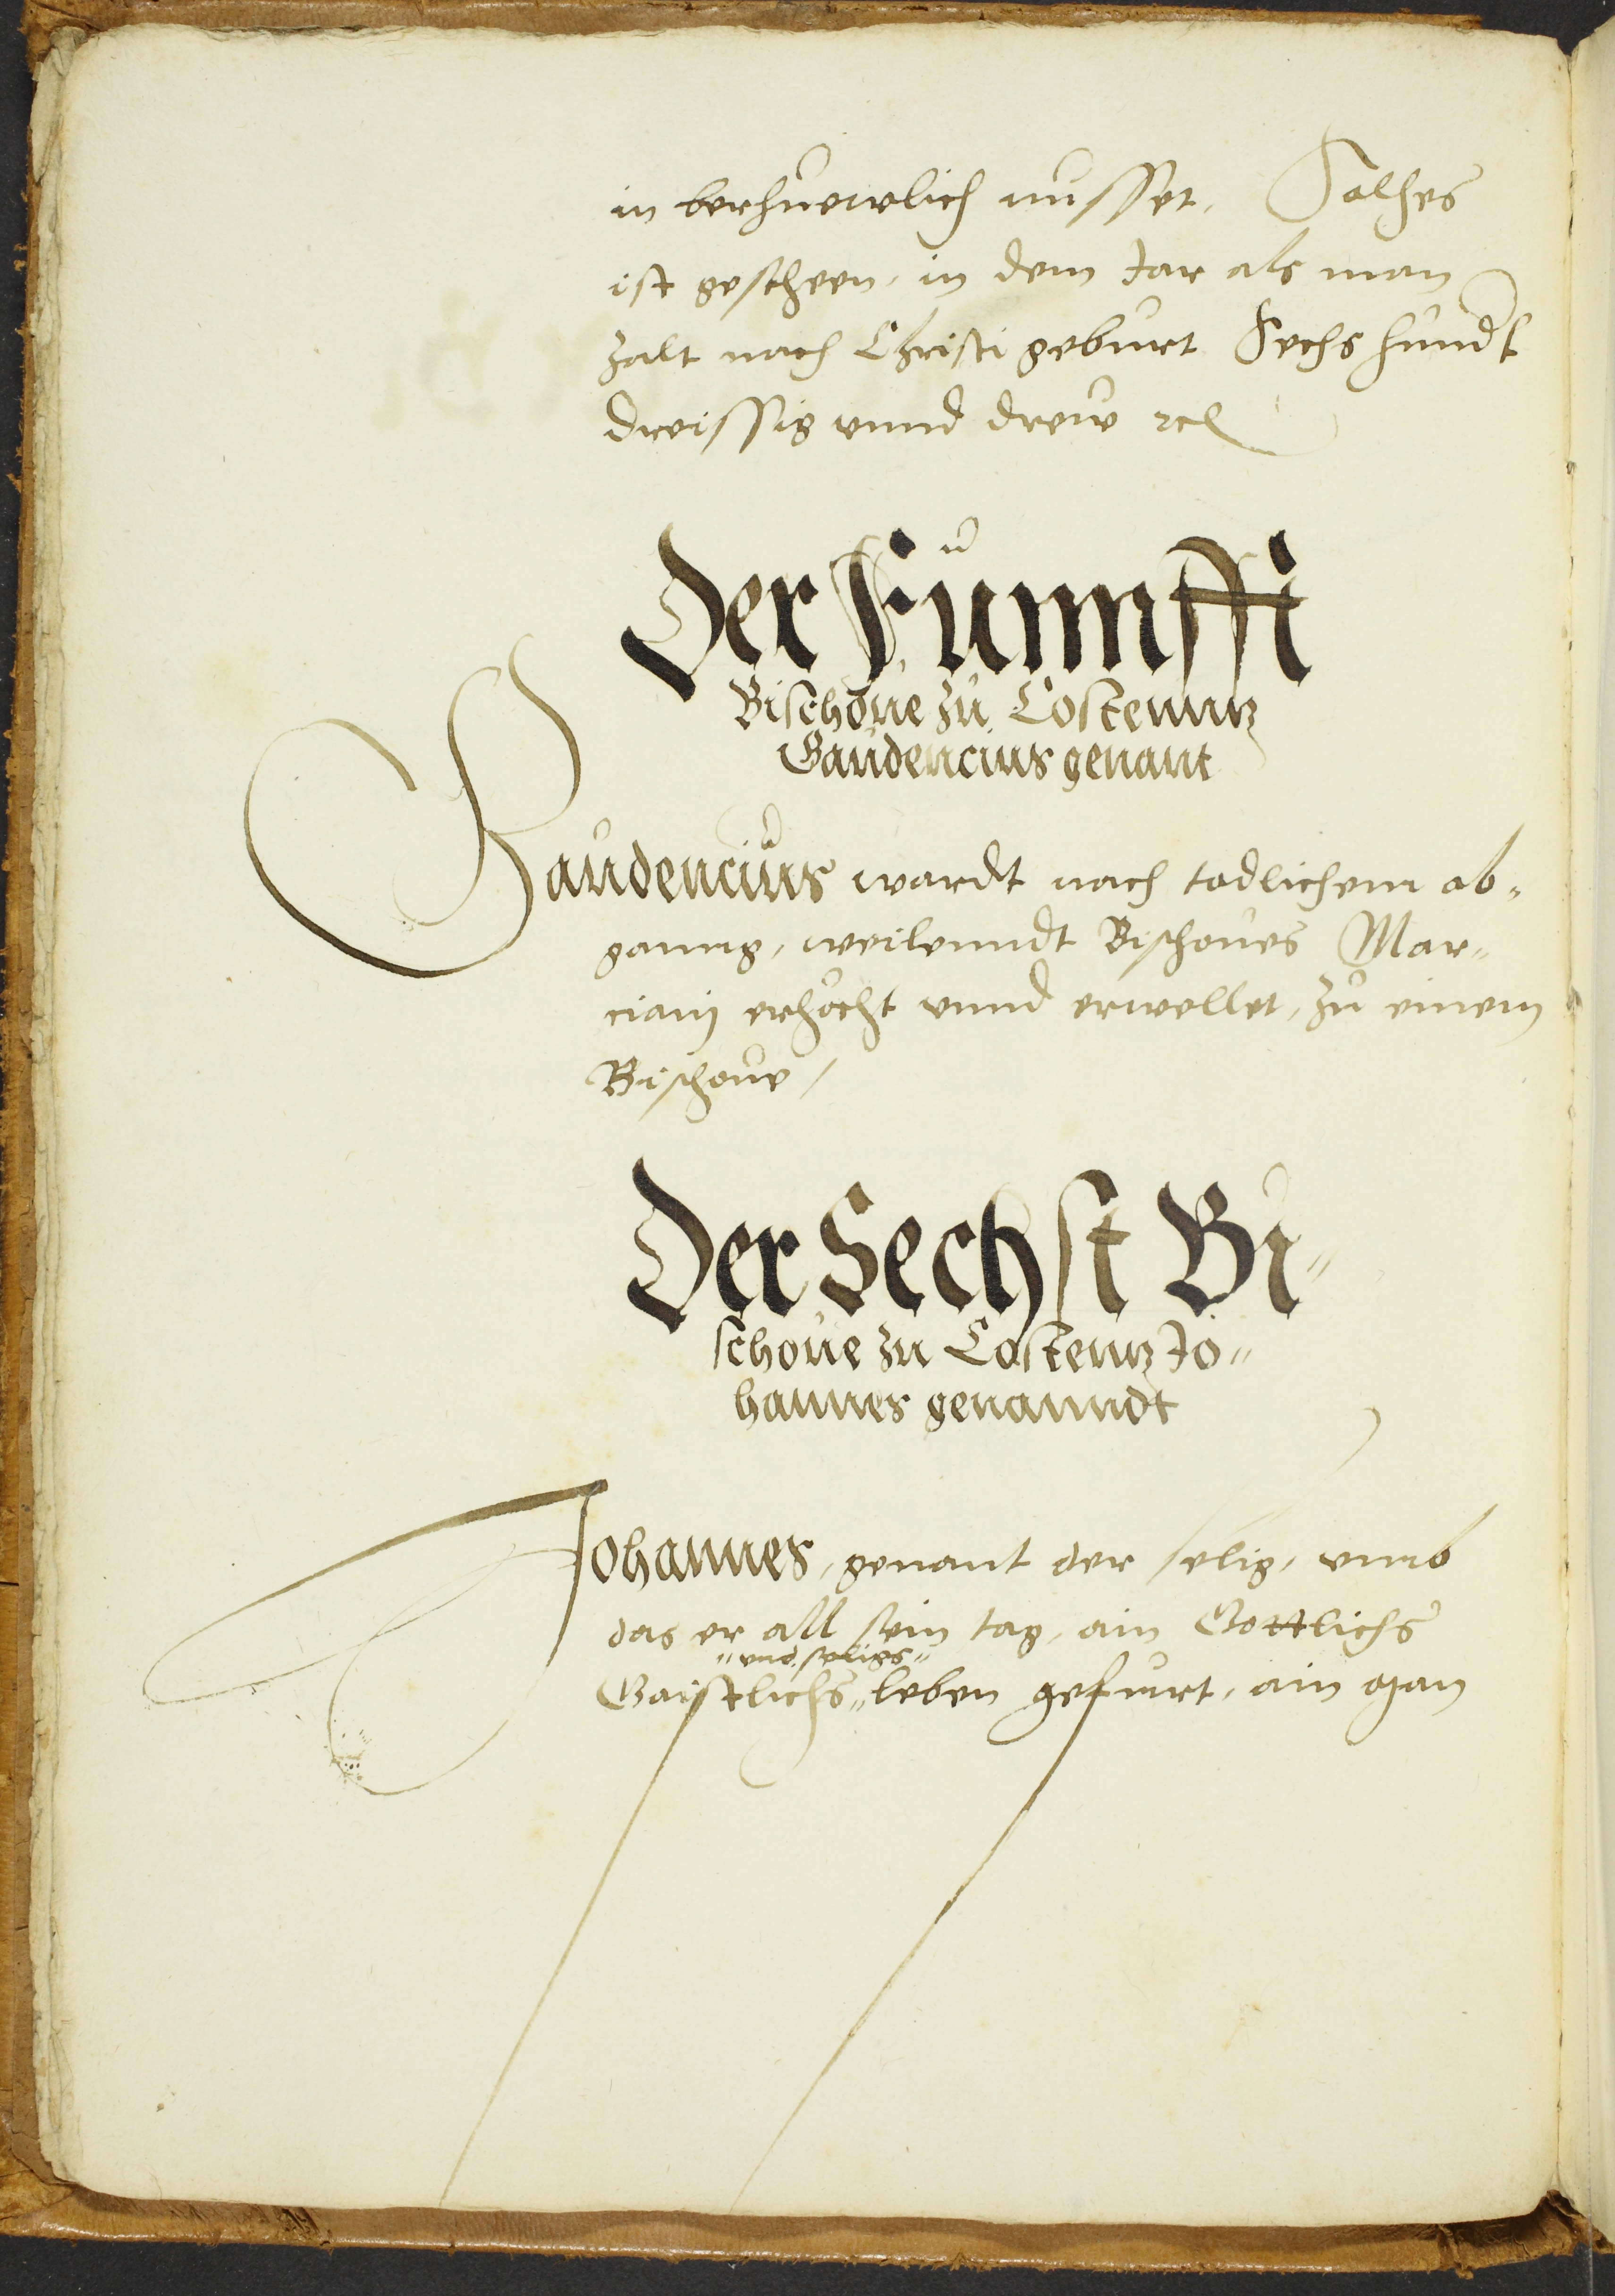 in berhuewlich nusset. Solhes
ist gescheen, in dem Jar als man
zalt nach Christi geburt Sechs hundt
dreissig vnnd drew rcl
Der Fünnfft
Bischoue zu Costennz
Gaudencius genant
Gaudencius wardt nach todlichem ab-
ganng, weilenndt Bischoues Mar-
ciani erhöcht vnnd erwellet, zu einem
Bischoue /
Der Sechst Bi-
schoue zu Costennz Jo-
hannes genanndt
Johannes, genant der selig, vmb
das er all sein tag, ain Gottlichs
"vnd seligs"
Gaistlichs " leben gefuert, ain